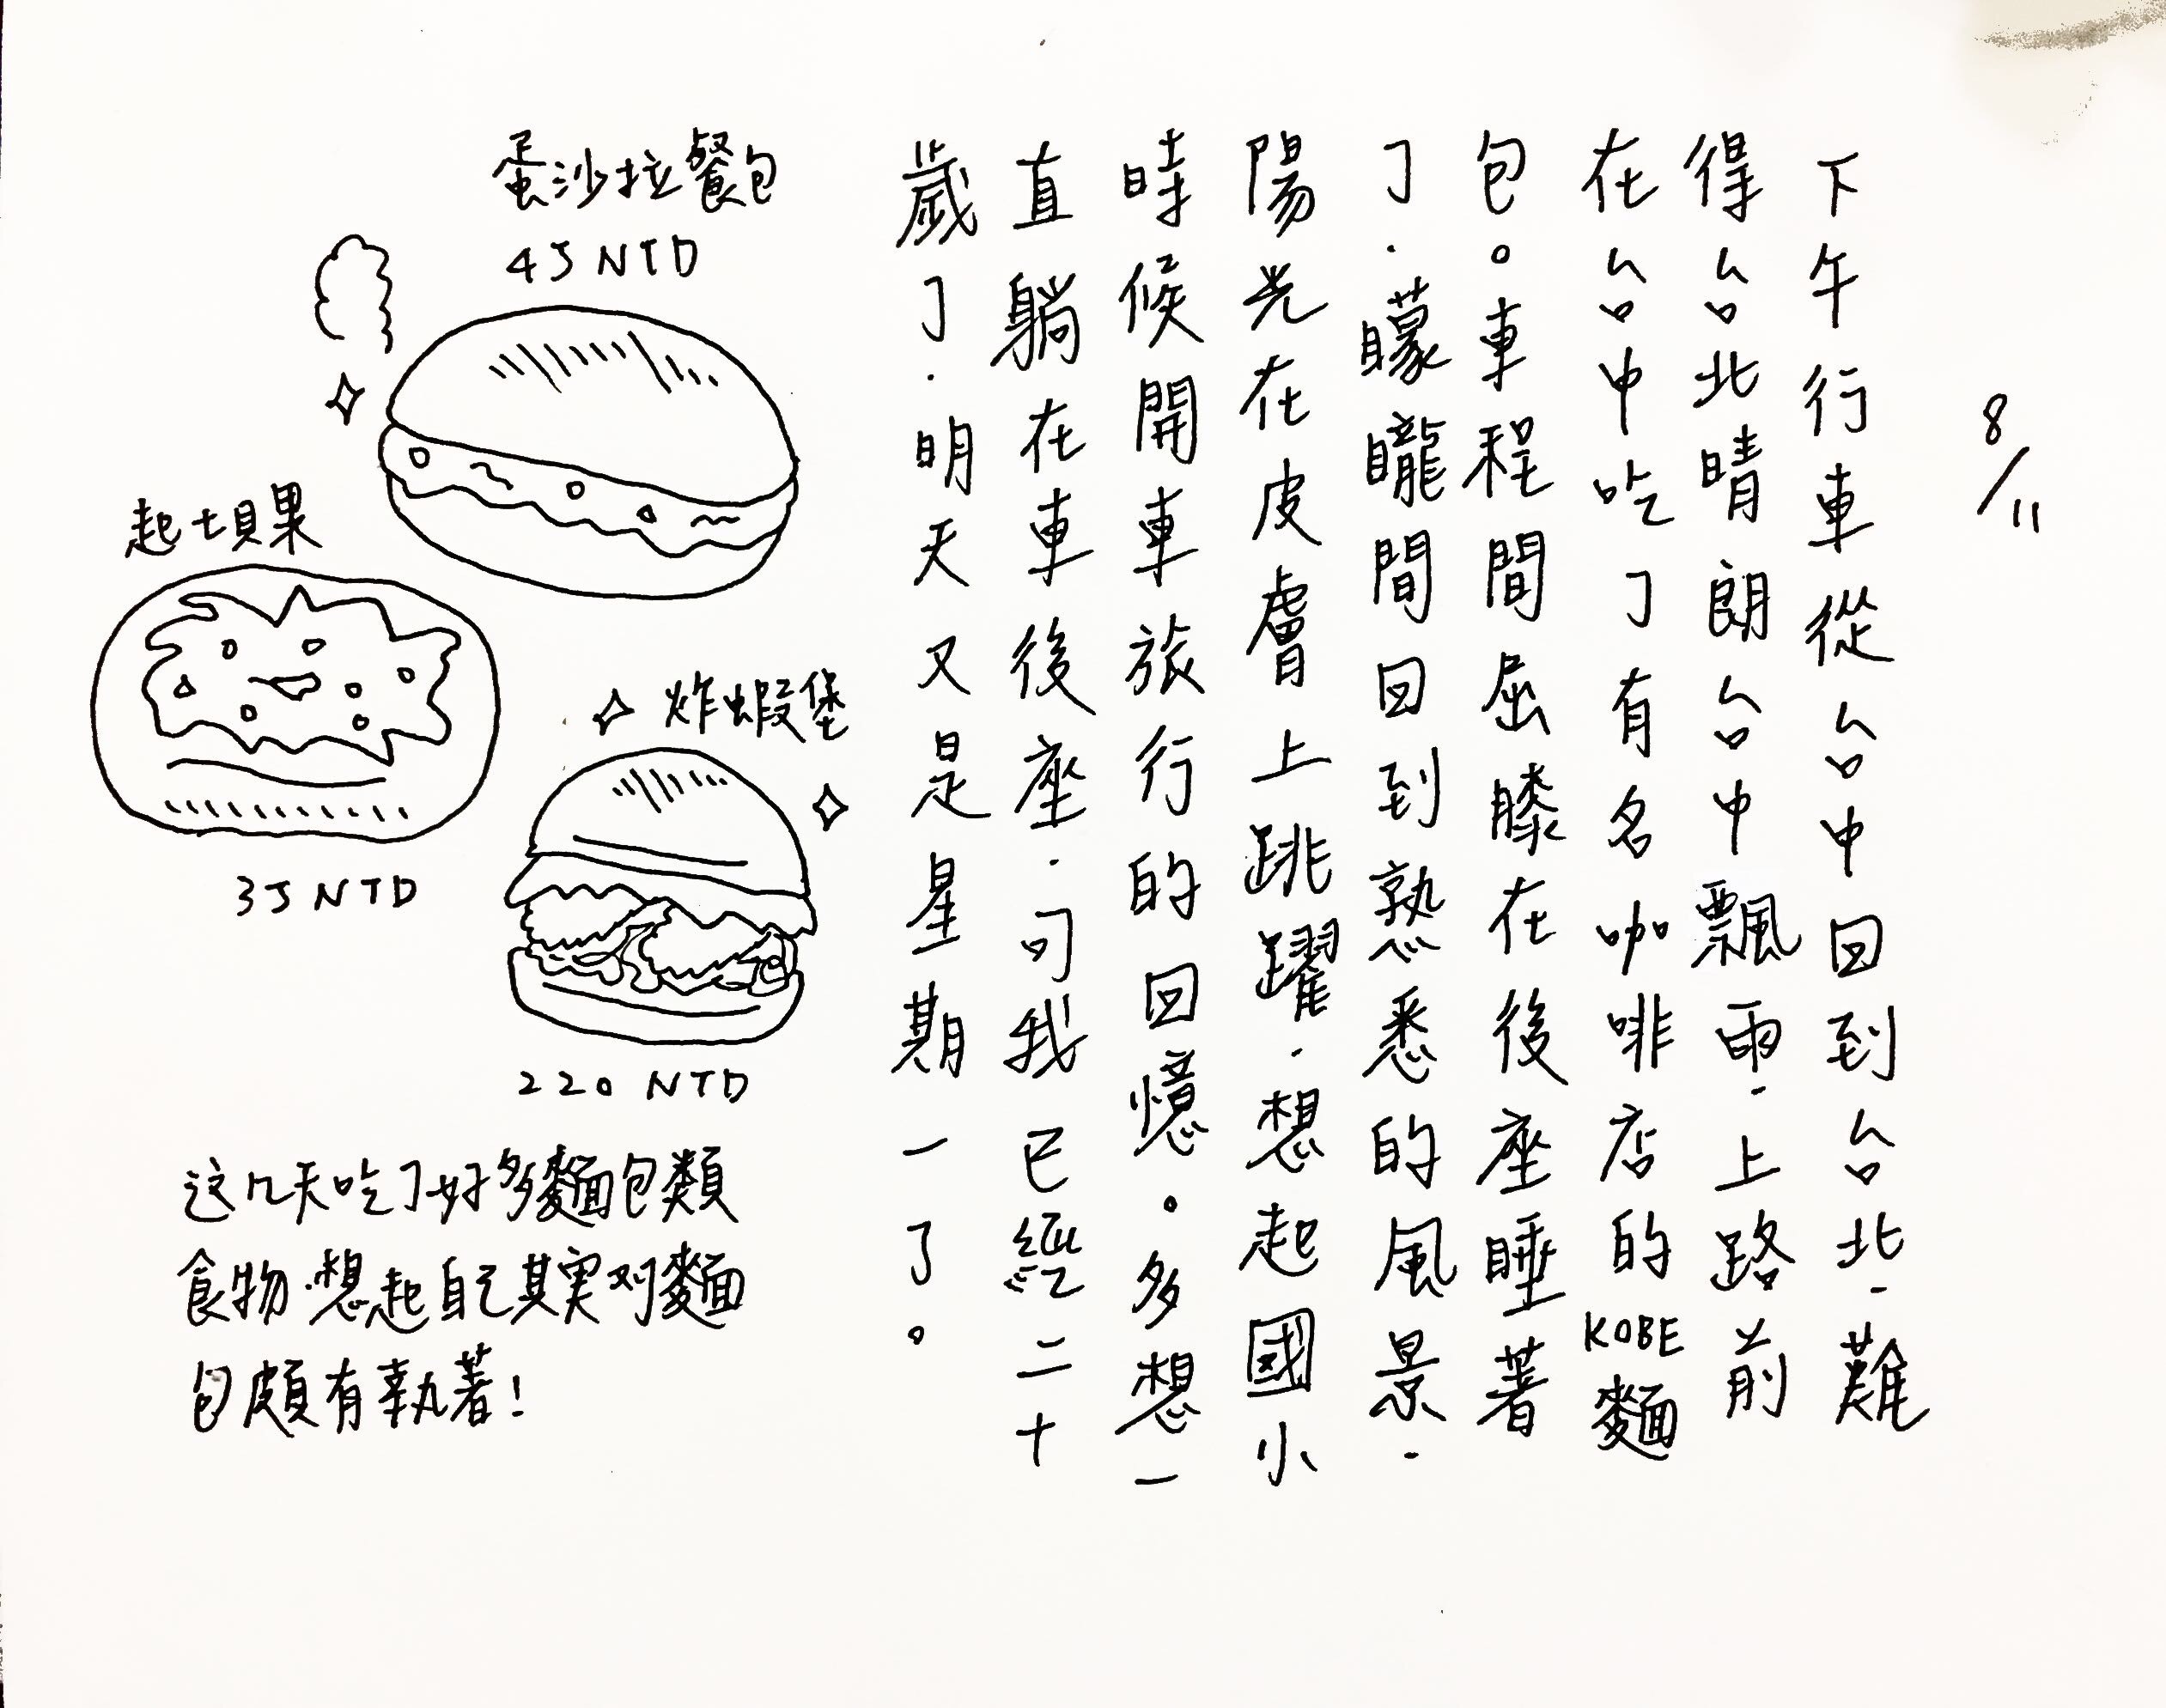 8/11
下午行車從台中回到台北．難
得台北晴朗台中飄雨．上路前
在台中吃了有名咖啡店的KOBE麵
包。車程間屈膝在後座睡著
了．矇矓間回到熟悉的風景．
陽光在皮膚上跳躍．想起國小
時候開車旅行的回憶。多想一
直躺在車後座．可我已經二十
歲了．明天又是星期一了。
蛋沙拉餐包
45 NTD
起士貝果
35 NTD
炸蝦堡
220 NTD
这几天吃了好多麵包類
食物．想起自己其実对麵
包頗有執著！